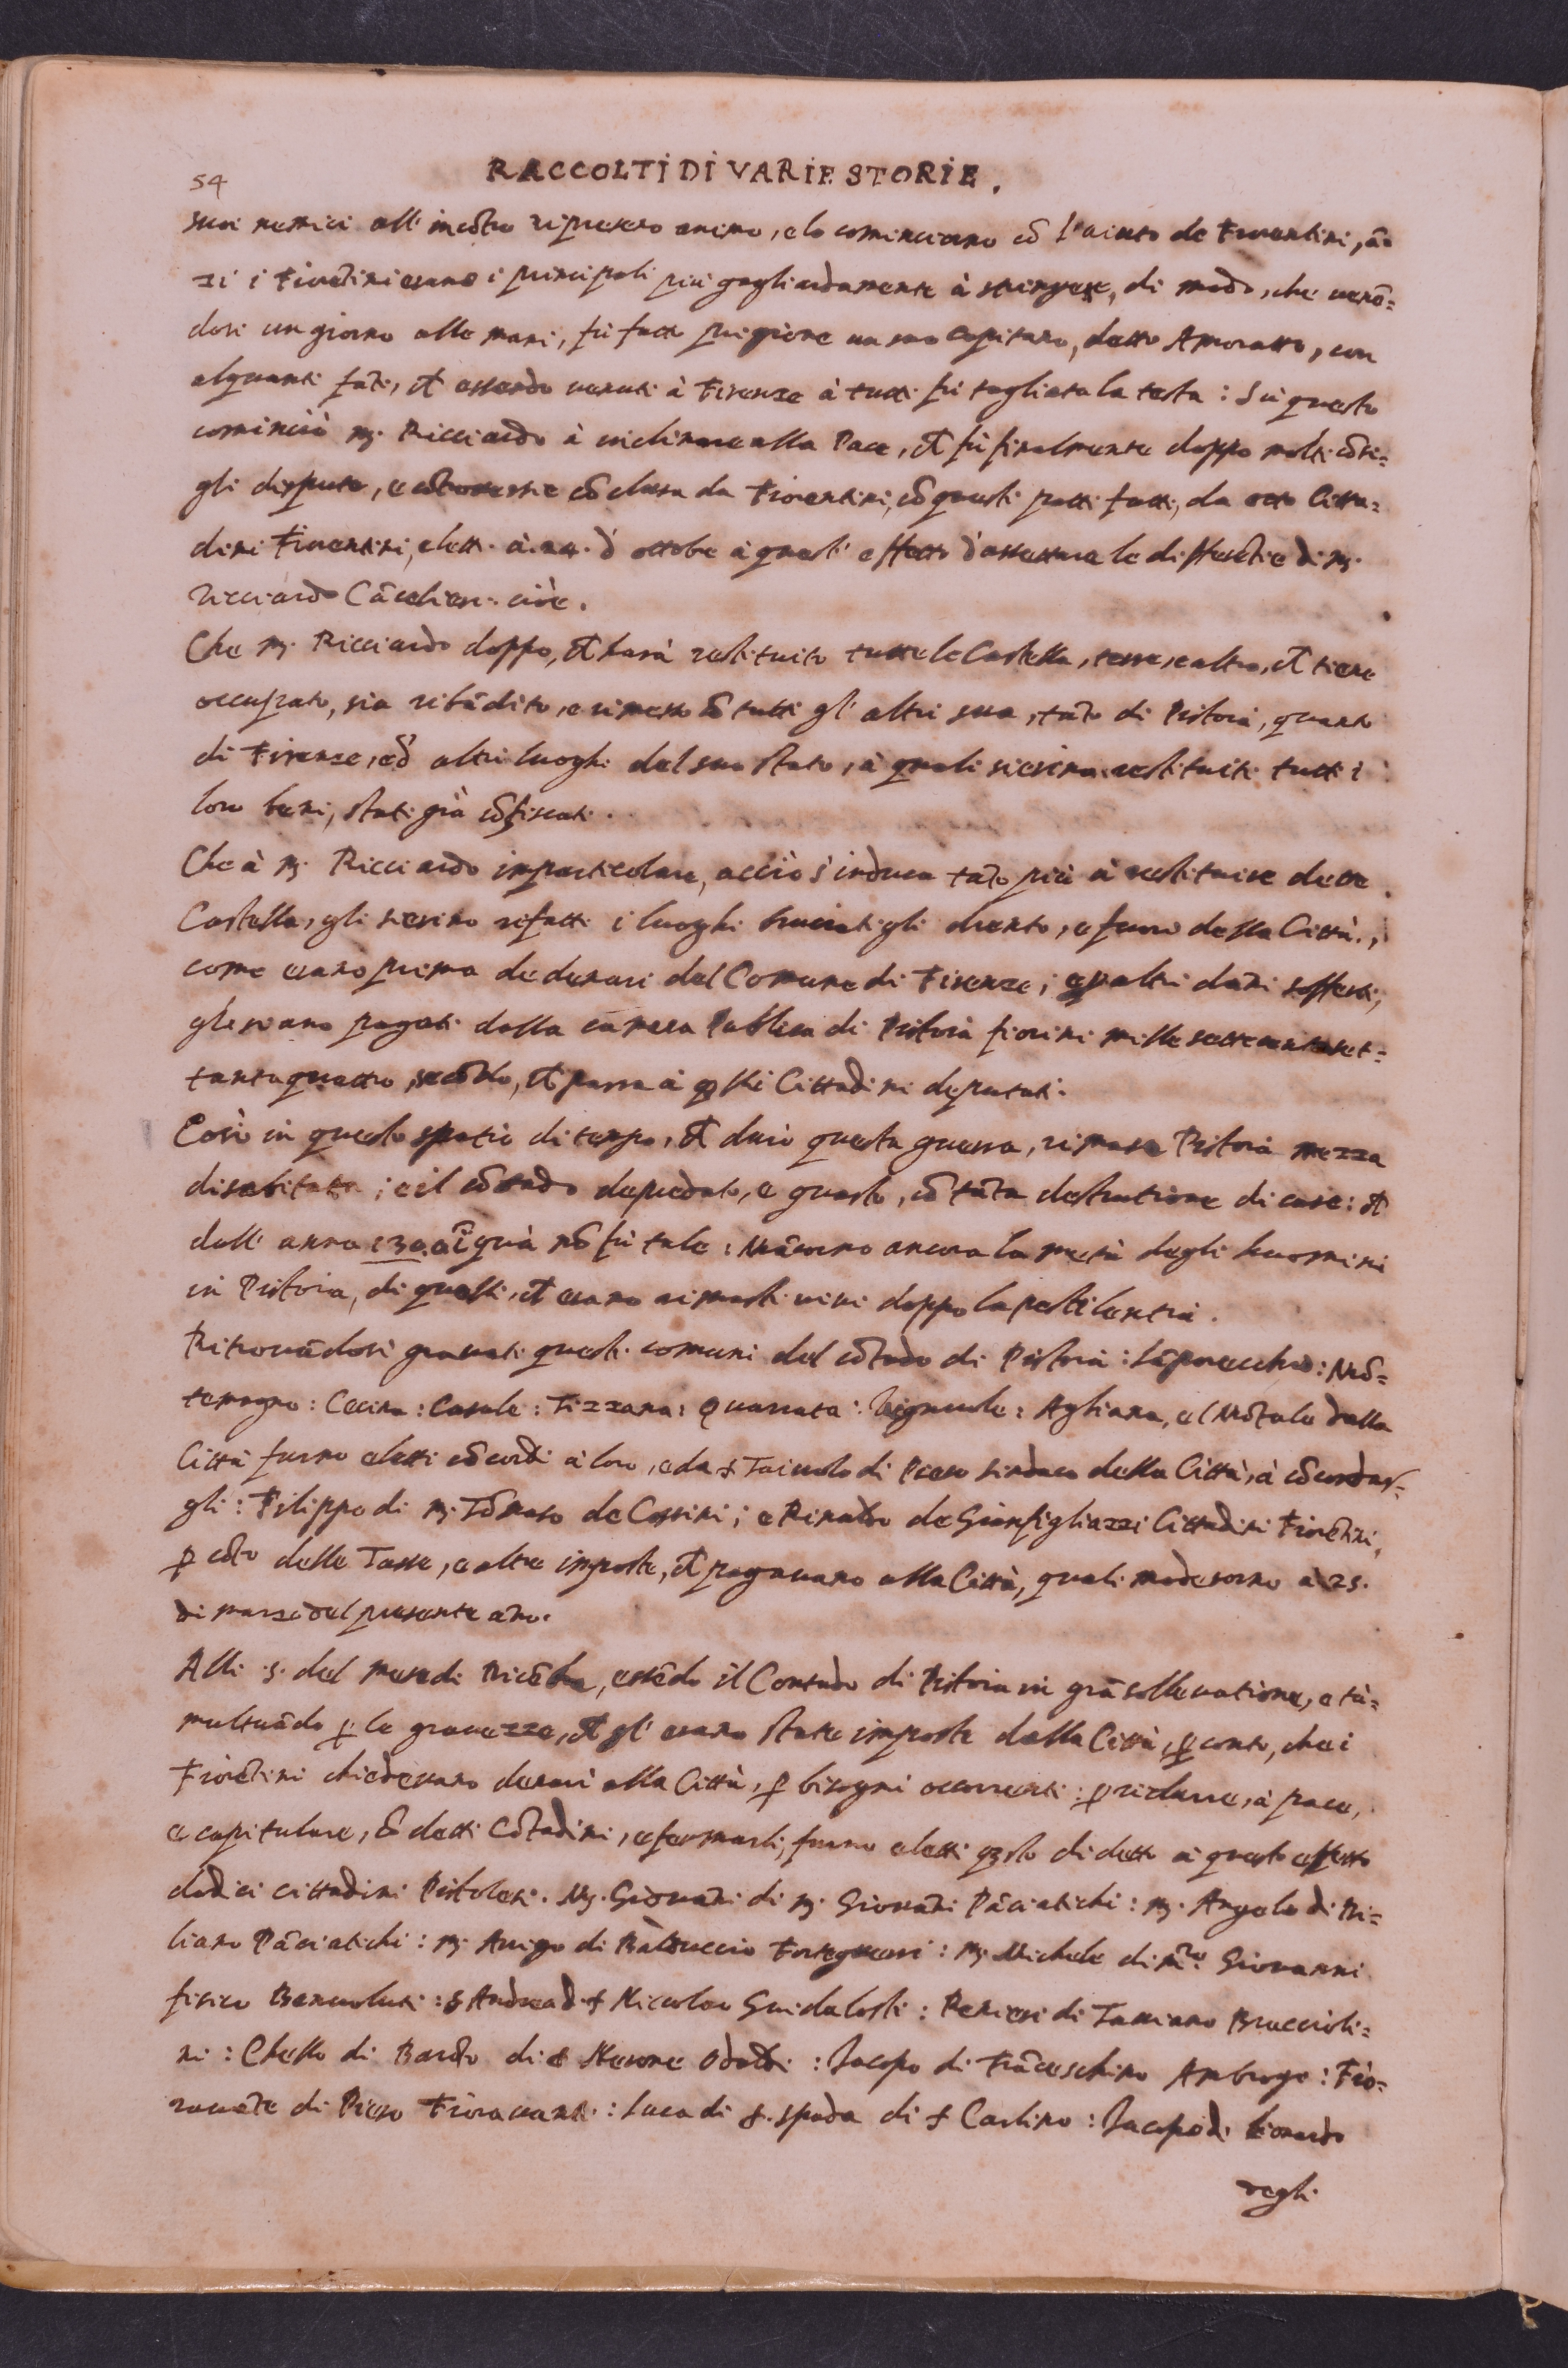 54
RACCOLTI DI VARIE STORIE.
suoi nemici all' incõtro ripresero animo, e lo cominciorno cõ l'aiuto de Fiorentini, ã=
zi i Fiorẽtini erano i principali più gagliardamente à stringere, di modo, che venẽ=
dosi un giorno alle mani, fù fatto prigione un suo Capitano, detto Amoratto, con
alquanti fãti, et essendo venuti à Firenze à tutti fù tagliata la testa: Sù questo
cominciò M. Ricciardo à inclinare alla Pace, et fù finalmente doppo molti cõsi=
gli dispute, e cõtroversie cõclusa da Fiorentini, cõ questi patti fatti, da otto Citta=
dini Fiorentini, eletti à 24. d'ottobe à quest' effetto d'assettare le differẽtie di M.
Ricciardo Cãcellieri. cioè.
Che M. Ricciardo doppo, et harà restituito tutte le Castella, terre, e altro, et tiene
occupato, sia ribãdito, e rimesso cõ tutti gl' altri sua, tãto di Pistoia, quanto
di Firenze, ed' altri luoghi del suo stato, à quali sieno restituiti tutti i
loro beni, stati già cõfiscati.
Che à M. Ricciardo imparticolare, acciò s'induca tãto più à restituire dette
Castella, gli sieno rifatti i luoghi bruciatigli drento, e fuori della Città,
come erano prima de denari del Comune di Firenze; e p altri dãni sofferti,
gle siano pagati dalla camera Publica di Pistoia fiorini mille settecentoset=
tantaquattro, secõdo, et parrà à qsti Cittadini deputati.
Così in questo spatio di tempo, et durò questa guerra, rimase Pistoia mezza
disabitata; e il cõtado depredato, e guasto, cõ tãta destrutione di case: et
dall' anno 130. ĩ quà nõ fù tale: Mãcorno ancora la metà degli huomini
in Pistoia, di quelli, et erano rimasti vivi doppo la pestilentia.
Ritrovãdosi gravati questi comuni del cõtado di Pistoia: Lãporecchio: Mõ=
temagno: Cecina: Casale: Tizzana: Quarrata: Vignole: Agliana, e'l Mõtale dalla
Città furno eletti cõcordi à loro, e da s Taiuolo di Piero sindaco della Città, à cõcordar=
gli: Filippo di M. Tõmaso de Corsini; e Rinaldo de Gianfigliazzi Cittadini Fiorẽtini,
p cõto delle Tasse, e altre imposte, et pagavano alla Città, quali moderorno à 25.
di marzo del presente ãno.
Alli 5. del mese di Dicẽbre, essẽdo il Contado di Pistoia in grã sollevatione, e tu=
multuãdo p le gravezze, et gl' erano state imposte dalla Città, p conto, che i
Fiorẽtini chiedevano denari alla Città, p bisogni occorrenti: p ridurre, à pace,
e capitulare, cõ detti Cõtadini, e fermarli, furno eletti qsto di detto à questo effetto
dodici cittadini Pistolesi. M. Giovãni di M. Giovãni Pãciatichi: M. Angelo di Bi=
liano Pãciatichi: M. Arrigo di Balduccio Forteguerri: M. Michele di m.ro Giovanni
fisico Benvoluti: s Andrea di s Niccolao Guidalosti: Ranieri di Tanciano Bracciolí=
ni: Chello di Bardo di s Nerone Odaldi: Iacopo di Frãceschino Ambrogi: Fio=
ravãte di Piero Fioravanti: Luca di s. spada di s Carlino: Iacopo di Leonardo
vegli